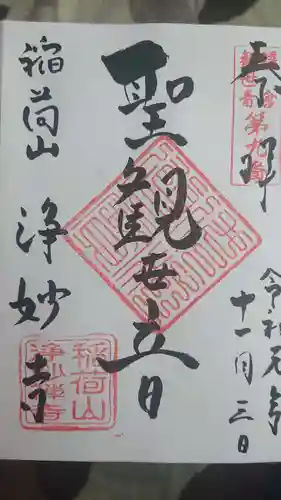 奉拝
第九番
令和元年
十一月三日
聖観世音
稲荷山
浄妙寺
稲荷山
浄妙禅寺